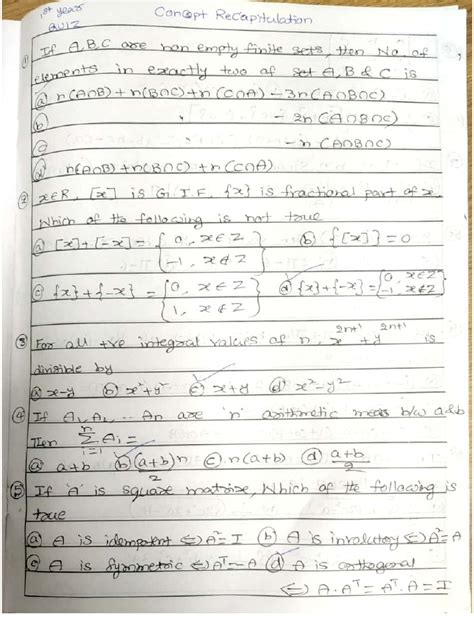 1st year Concept Recapitulation
QUIZ
① If A,B,C are non empty finite sets, then No. of
elements in exactly two of set A,B & C is
ⓐ n(A∩B)+n(B∩C)+n(C∩A) - 3n(A∩B∩C)
ⓑ " - 2n(A∩B∩C)
ⓒ - n(A∩B∩C)
ⓓ n(A∩B)+n(B∩C)+n(C∩A)
② x∈R, [x] is G.I.F, {x} is fractional part of x.
Which of the following is not true
ⓐ [x]+[-x] = {0, x∈Z
-1, x∉Z} ⓑ {[x]}=0
ⓒ {x}+{-x} = {0, x∈Z
1, x∉Z} ⓓ {x}+{-x}={0, x∈Z
-1, x∉Z
③ For all +ve integral values of n, x^2n+1 + y^2n+1 is
divisible by
ⓐ x-y ⓑ x²+y² ⓒ x+y ⓓ x²-y²
④ If A₁,A₂, ... An are 'n' arithmetic means b/w a&b
Then n∑i=1 Ai =
ⓐ a+b ⓑ (a+b)n/2 ⓒ n(a+b) ⓓ a+b/2
⑤ If 'A' is square matrix, Which of the following is
true
ⓐ A is idempotent ⇔ A²=I ⓑ A is involutory ⇔ A²=A
ⓒ A is symmetric ⇔ Aᵀ=-A ⓓ A is orthogonal
⇔ A.Aᵀ=Aᵀ.A=I